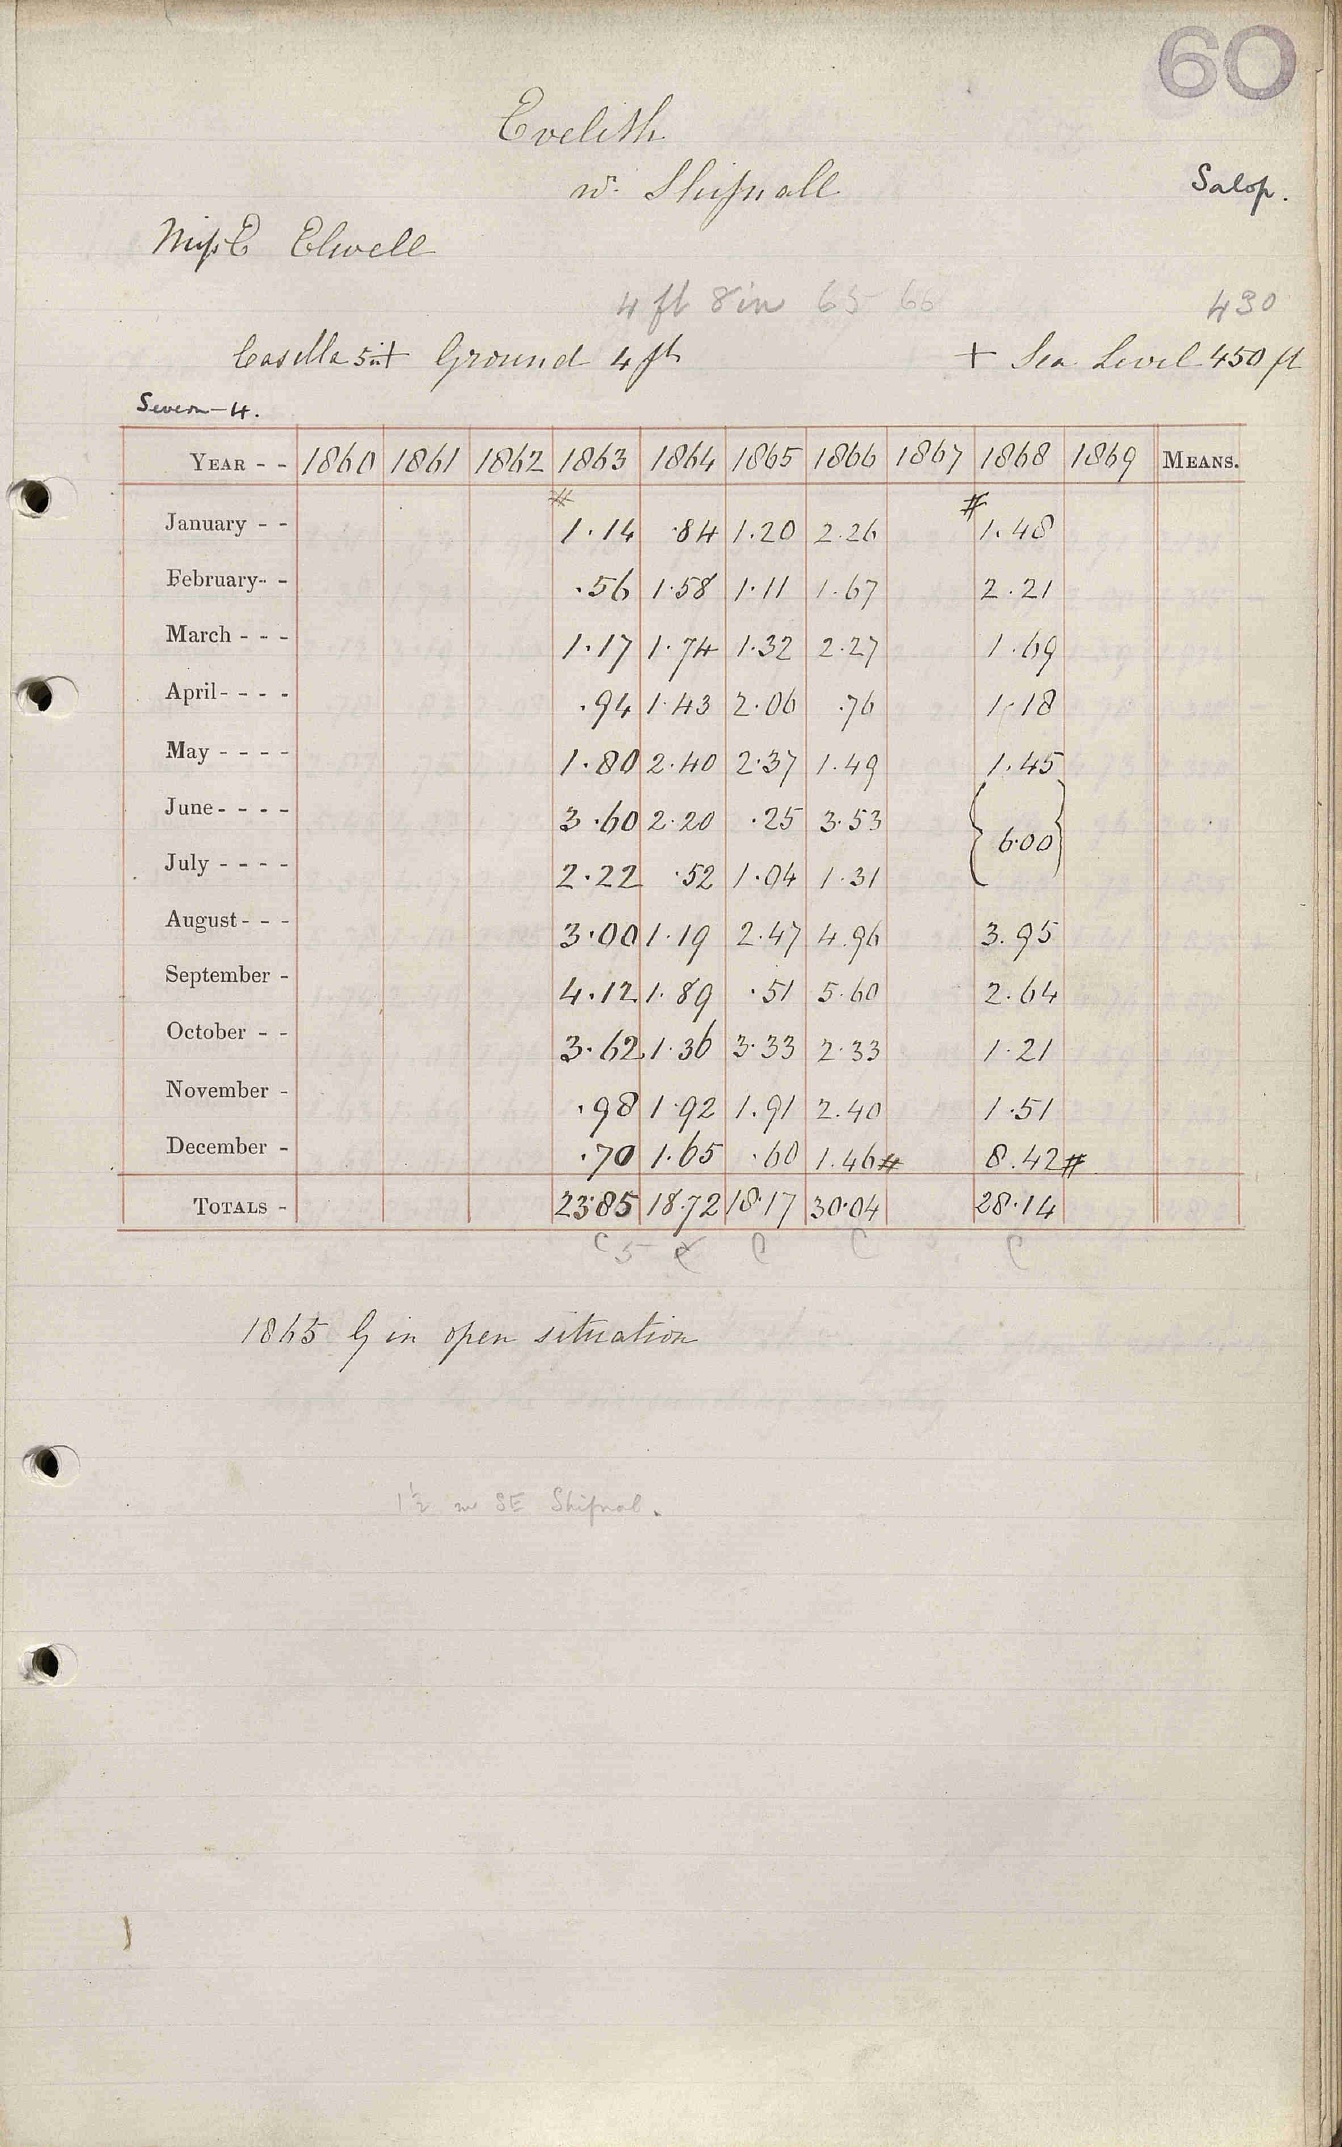 60
Evelith
nr Shifnall
Salop.
Miss E Elwell
4 ft 8 in 65 66
430
Casella 5in + Ground 4 ft + Sea Level 450 ft
Severn-4.
YEAR - - 1860 1861 1862 1863 1864 1865 1866 1867 1868 1869 MEANS.
# #
January - - 1.14 .84 1.20 2.26 1.48
February - - .56 1.58 1.11 1.67 2.21
March - - - 1.17 1.74 1.32 2.27 1.69
April - - - - .94 1.43 2.06 .76 1.18
May - - - - 1.80 2.40 2.37 1.49 1.45
June - - - - 3.60 2.20 .25 3.53
{6.00}
July - - - - 2.22 .52 1.04 1.31
August - - - 3.00 1.19 2.47 4.96 3.95
September - 4.12 1.89 .51 5.60 2.64
October - - 3.62 1.36 3.33 2.33 1.21
November - .98 1.92 1.91 2.40 1.51
December - .70 1.65 .60 1.46# 8.42#
TOTALS - 23.85 18.72 18.17 30.04 28.14
C 5 C C C C
1865 G in open situation
1½ m SE Shifnal.